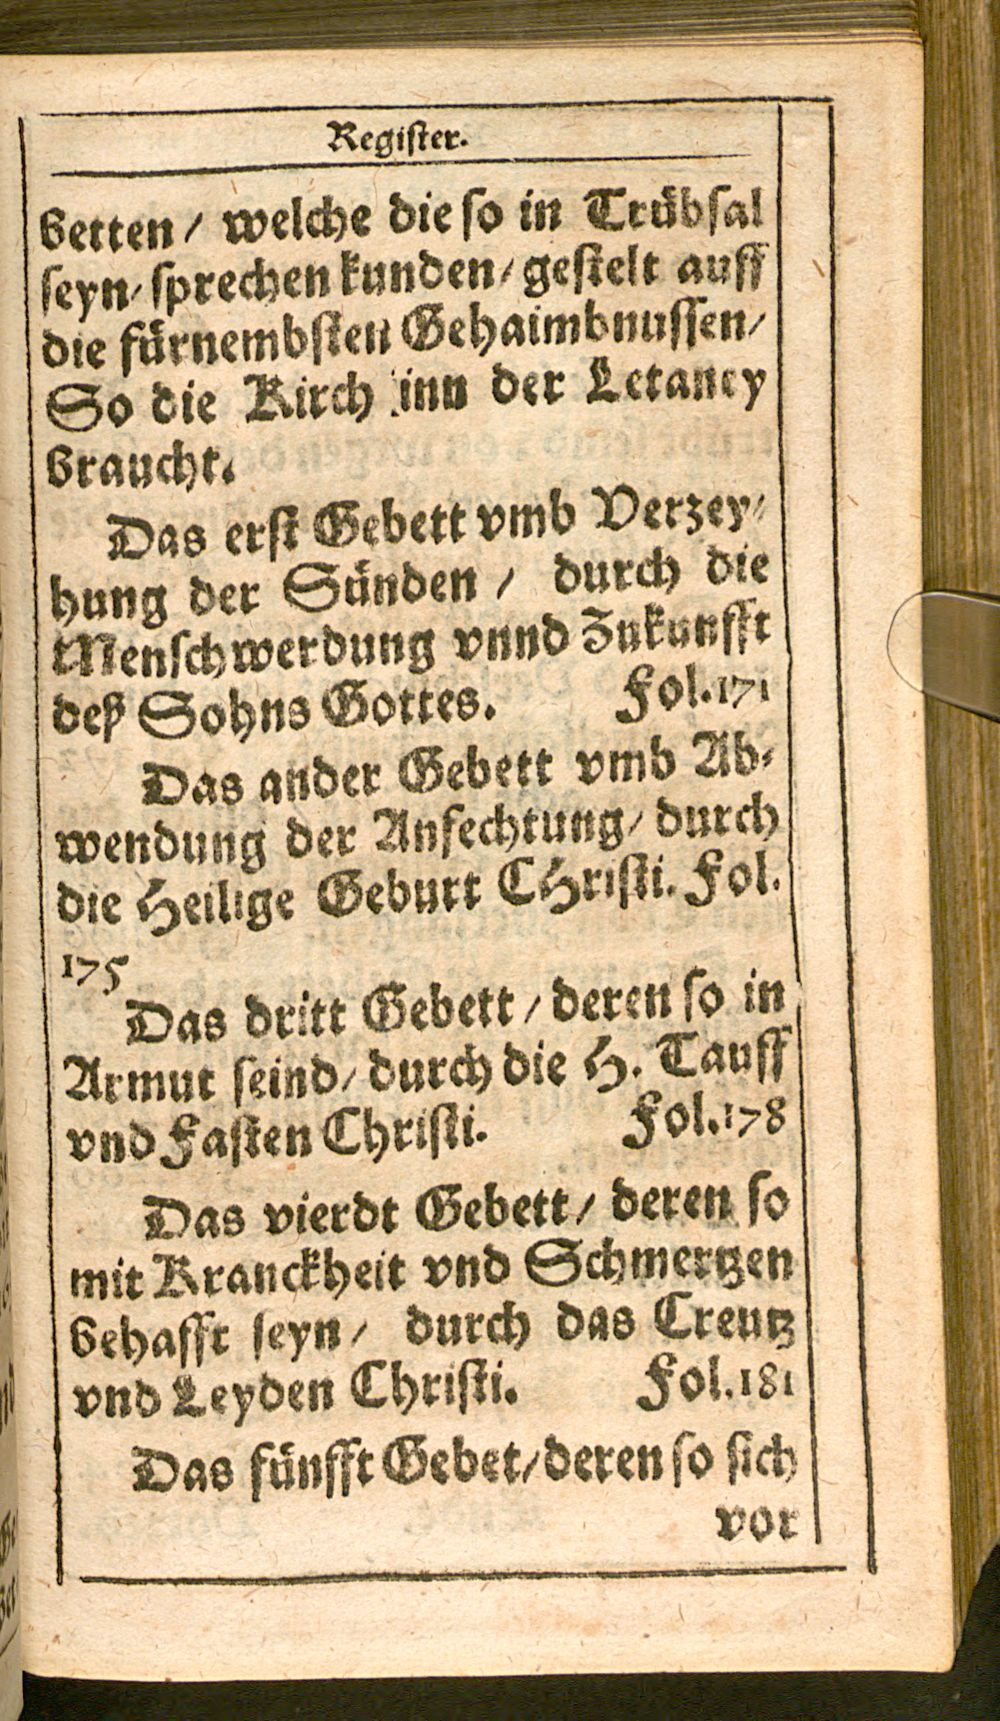 Register.
betten / welche die so in Trübsal
seyn / sprechen kunden / gestelt auff
die fürnembsten Gehaimbnussen /
So die Kirch inn der Letaney
braucht.
Das erst Gebett vmb Verzey-
hung der Sünden / durch die
Menschwerdung vnnd Zukunfft
deß Sohns Gottes. Fol. 171
Das ander Gebett vmb Ab-
wendung der Anfechtung / durch
die Heilige Geburt CHristi. Fol.
175
Das dritt Gebett / deren so in
Armut seind / durch die H. Tauff
vnd Fasten Christi. Fol. 178
Das vierdt Gebett / deren so
mit Kranckheit vnd Schmertzen
behafft seyn / durch das Creutz
vnd Leyden Christi. Fol. 181
Das fünfft Gebet / deren so sich
vor